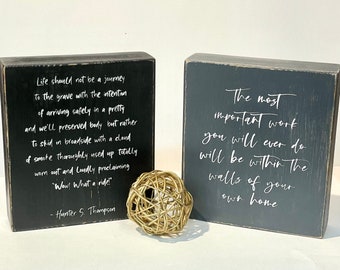 Life should not be a journey
to the grave with the intention
of arriving safely in a pretty
and well preserved body but rather
to skid in broadside with a cloud
of smoke thoroughly used up totally
worn out and loudly proclaiming
"Wow! What a ride!"
- Hunter S. Thompson
The most
important work
you will ever do
will be within the
walls of your
own home